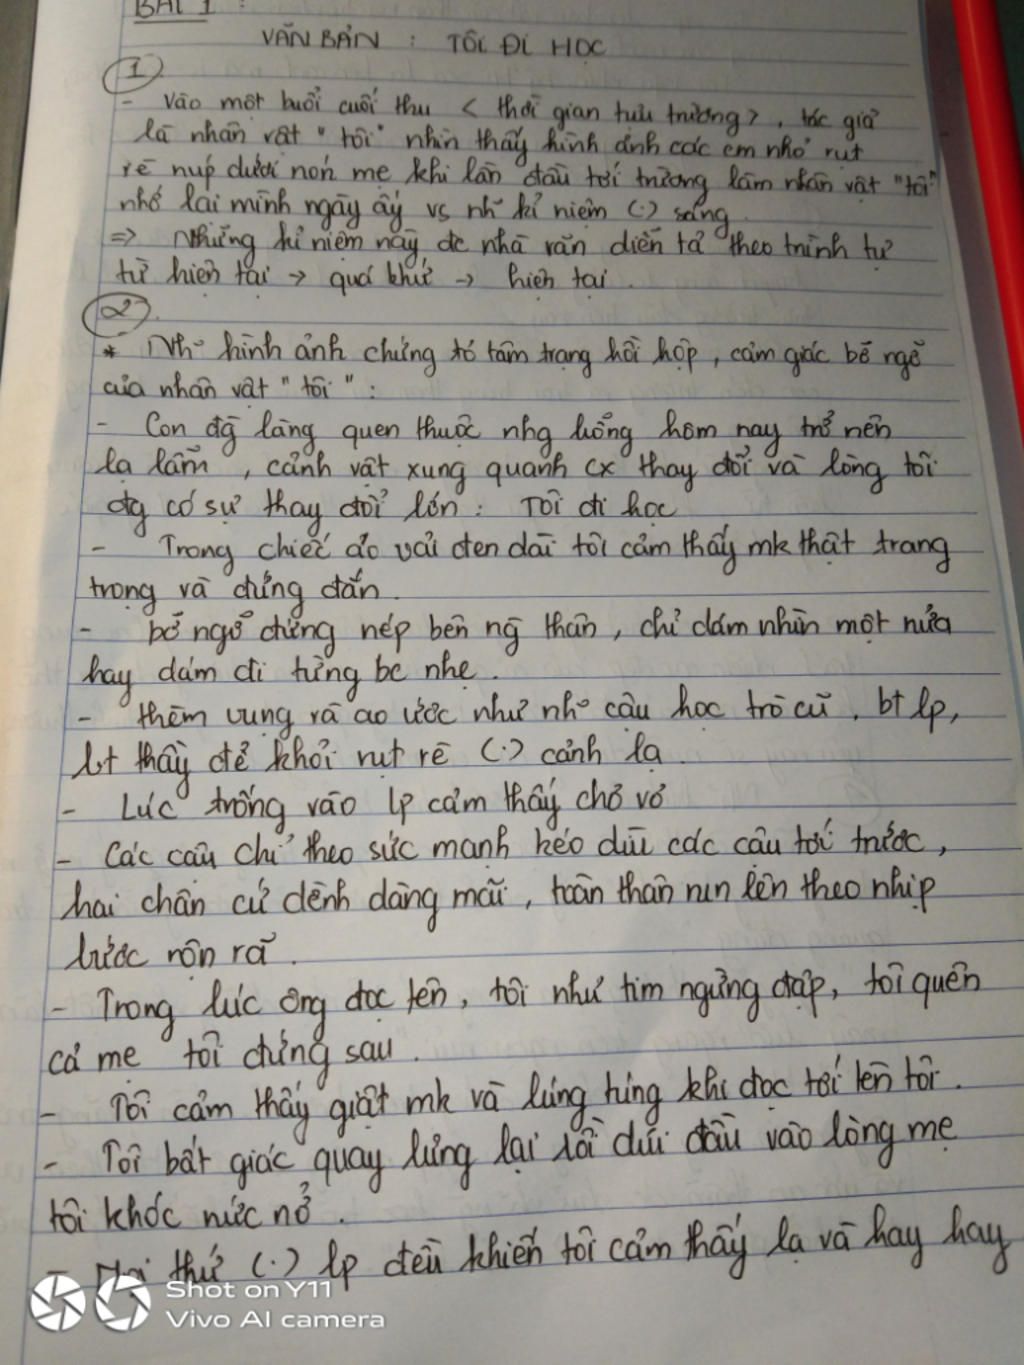 BÀI 1 :
VĂN BẢN : TÔI ĐI HỌC
1
- Vào một buổi cuối thu < thời gian tựu trường > , tác giả
là nhân vật " tôi " nhìn thấy hình ảnh các em nhỏ rụt
rè núp dưới nón mẹ khi lần đầu tới trường làm nhân vật "tôi"
nhớ lại mình ngày ấy vs nh~ kỉ niệm (.) sáng
=> Những kỉ niệm này đc nhà văn diễn tả theo trình tự
từ hiện tại -> quá khứ -> hiện tại .
2
* Nh~ hình ảnh chứng tỏ tâm trạng hồi hộp , cảm giác bỡ ngỡ
của nhân vật " tôi " :
- Con đg làng quen thuộc nhg bỗng hôm nay trở nên
lạ lắm , cảnh vật xung quanh cx thay đổi và lòng tôi
đg có sự thay đổi lớn : Tôi đi học
- Trong chiếc áo vải đen dài tôi cảm thấy mk thật trang
trọng và đứng đắn .
- bỡ ngỡ đứng nép bên ng thân , chỉ dám nhìn một nửa
hay dám đi từng bc nhẹ .
- thèm vụng và ao ước như nh~ cậu học trò cũ , bt lp,
bt thầy để khỏi rụt rè (.) cảnh lạ .
- Lúc trống vào lp cảm thấy chơ vơ
- Các cậu chỉ theo sức mạnh kéo dìu các cậu tới trước ,
hai chân cứ dềnh dàng mãi , toàn thân run lên theo nhịp
bước rộn rã .
- Trong lúc ông đọc tên , tôi như tim ngừng đập , tôi quên
cả mẹ tôi đứng sau .
- Tôi cảm thấy giật mk và lúng túng khi đọc tới tên tôi .
- Tôi bất giác quay lưng lại rồi dúi đầu vào lòng mẹ
tôi khóc nức nở .
- Mọi thứ (.) lp đều khiến tôi cảm thấy lạ và hay hay
Shot on Y11
Vivo AI camera